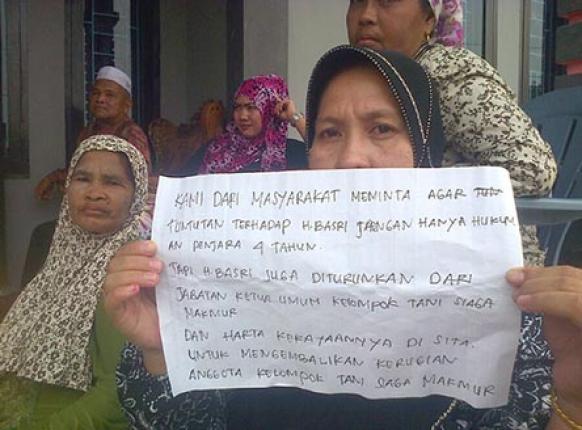 KAMI DARI MASYARAKAT MEMINTA AGAR
TUNTUTAN TERHADAP H.BASRI JANGAN HANYA HUKUM
AN PENJARA 4 TAHUN.
TAPI H.BASRI JUGA DITURUNKAN DARI
JABATAN KETUA UMUM KELOMPOK TANI SIAGA
MAKMUR
DAN HARTA KEKAYAANNYA DI SITA.
UNTUK MENGEMBALIKAN KERUGIAN
ANGGOTA KELOMPOK TANI SAGA MAKMUR